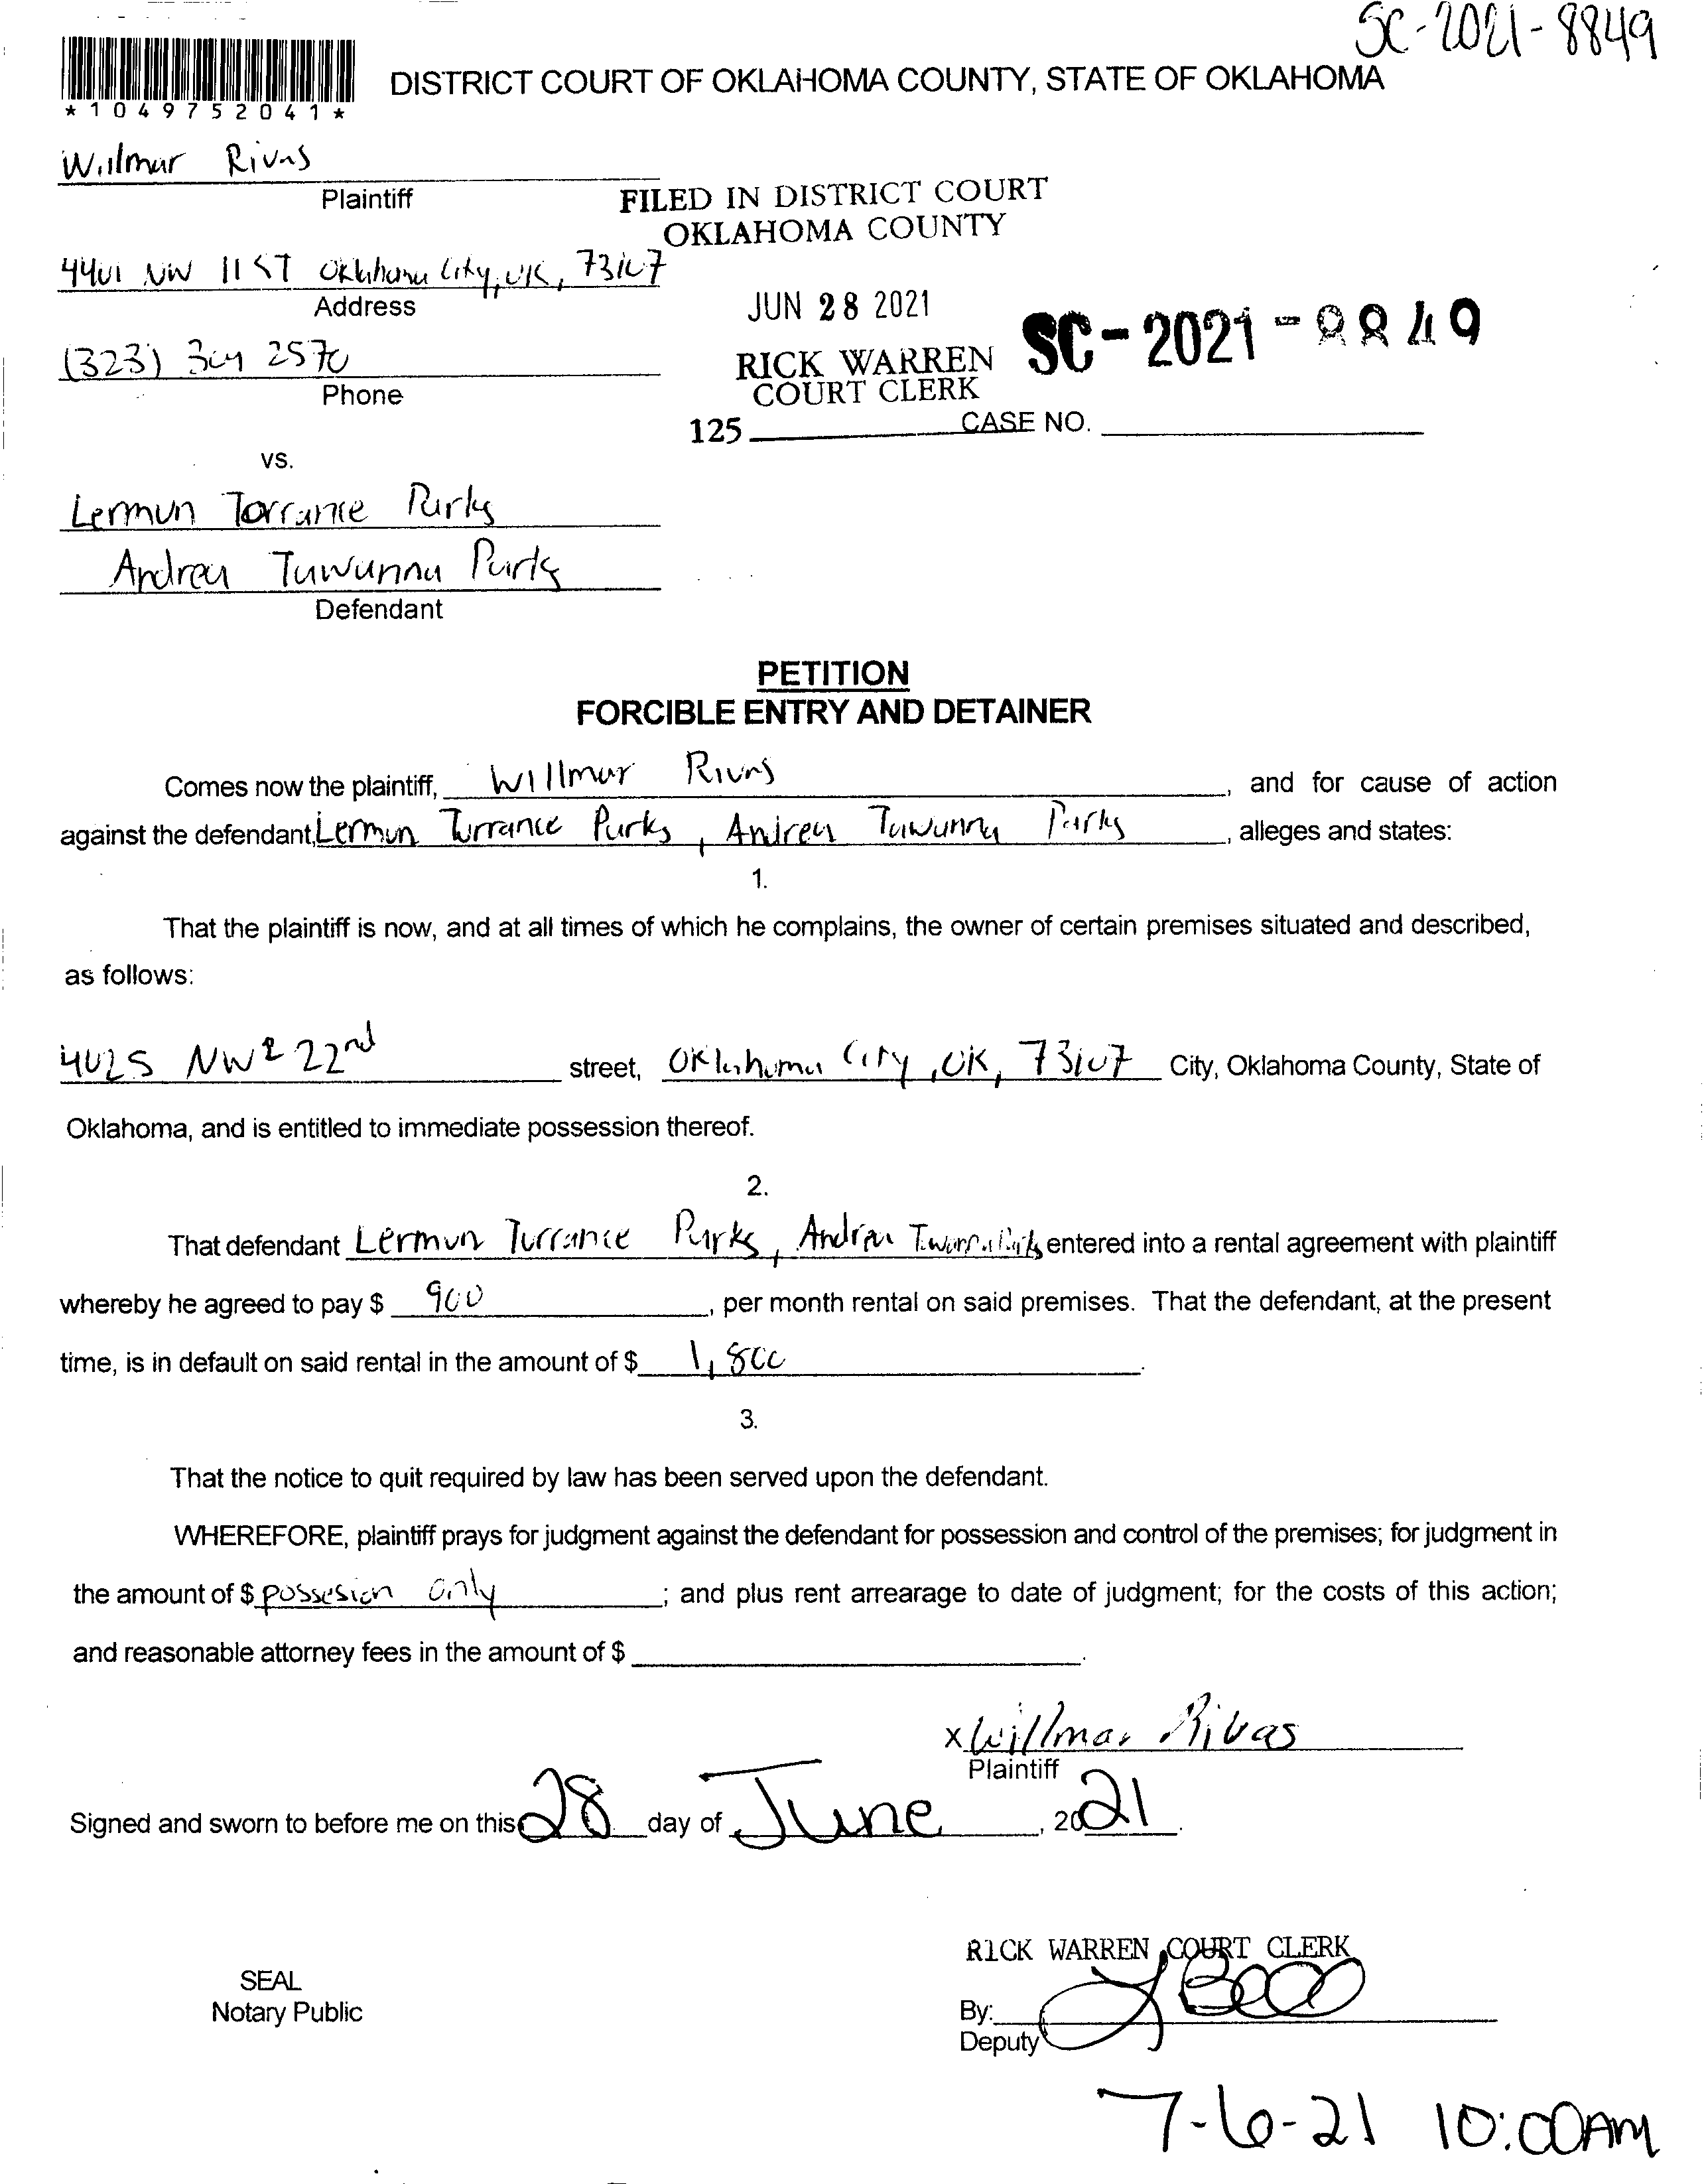 SC-2021-8849
DISTRICT COURT OF OKLAHOMA COUNTY, STATE OF OKLAHOMA
*1049752041*
Willmar Rivas
Plaintiff
FILED IN DISTRICT COURT
OKLAHOMA COUNTY
4401 NW 11 ST Oklahoma City, OK, 73107
Address
JUN 28 2021
SC-2021-8849
(323) 2570
Phone
RICK WARREN
COURT CLERK
125 CASE NO.
vs.
Lermun Torrance Parks
Andrea Tawanna Parks
Defendant
PETITION
FORCIBLE ENTRY AND DETAINER
Comes now the plaintiff, Willmar Rivas, and for cause of action
against the defendant, Lermun Torrance Parks, Andrea Tawanna Parks, alleges and states:
1.
That the plaintiff is now, and at all times of which he complains, the owner of certain premises situated and described,
as follows:
4025 NW 22nd street, Oklahoma City, OK, 73107 City, Oklahoma County, State of
Oklahoma, and is entitled to immediate possession thereof.
2.
That defendant Lermun Torrance Parks, Andrea Tawanna Parks entered into a rental agreement with plaintiff
whereby he agreed to pay $ 900, per month rental on said premises. That the defendant, at the present
time, is in default on said rental in the amount of $ 1,800.
3.
That the notice to quit required by law has been served upon the defendant.
WHEREFORE, plaintiff prays for judgment against the defendant for possession and control of the premises; for judgment in
the amount of $ possesion only; and plus rent arrearage to date of judgment; for the costs of this action;
and reasonable attorney fees in the amount of $ .
x Willmar Rivas
Plaintiff
Signed and sworn to before me on this 28 day of June, 2021.
RICK WARREN COURT CLERK
SEAL
Notary Public
By:
Deputy
7-6-21 10:00AM